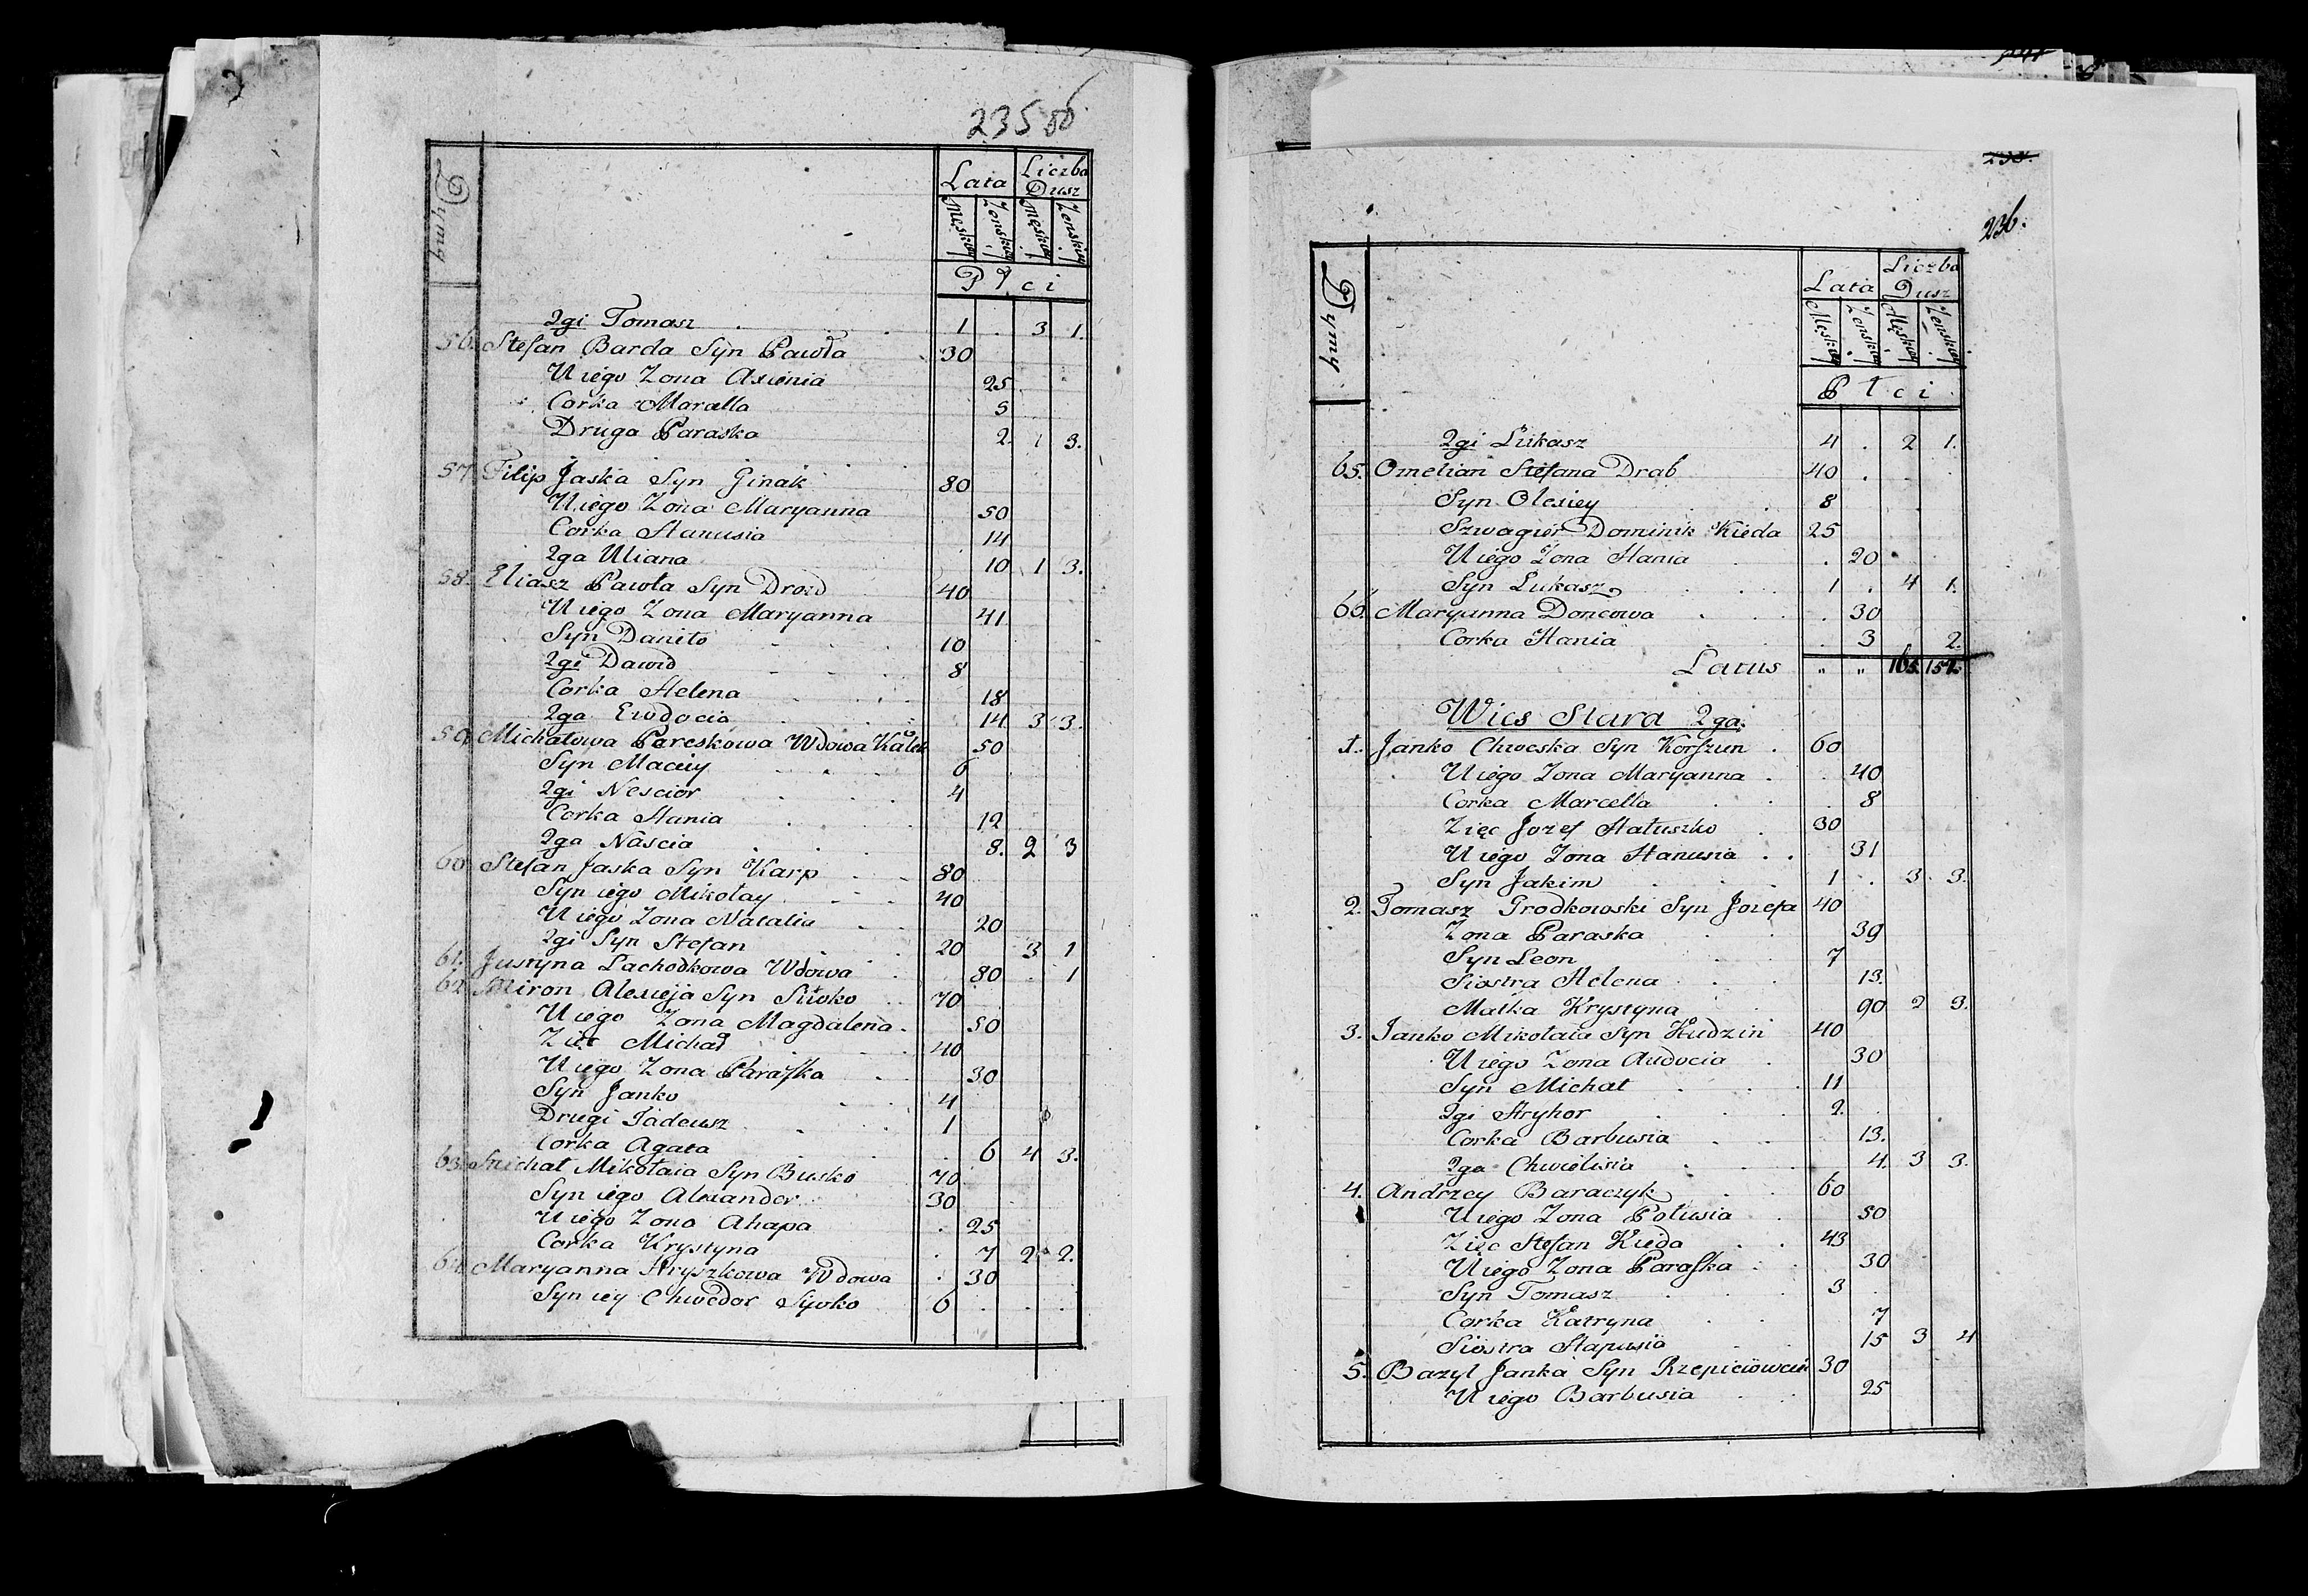 235 об
Dymy
Lata Liczba Dusz
Męskiey Zenskiey Męskiey Zenskiey
Płci
2gi Tomasz 1 . 3 1.
56. Stefan Barda Syn Pawła 30
U iego Zona Axienia 25
Corka Marcella 5
Druga Paraska 2. 1 3.
57. Filip Jaska Syn Ginak 80
U iego Zona Maryanna 50
Corka Hanusia 14
2ga Uliana 10 1 3.
58. Eliasz Pawła Syn Drozd 40
U iego Zona Maryanna 41
Syn Daniło 10
2gi Dawid 8
Corka Helena 18
2ga Ewdocia 14 3 3.
59. Michałowa Pareskowa Wdowa 50
Syn Maciey 6
2gi Nescior 4
Corka Hania 12
2ga Nascia 8. 2 3
60. Stefan Jaska Syn Karp 80
Syn iego Mikołay 40
U iego Zona Natalia 20
2gi Syn Stefan 20 3 1
61. Justyna Lachodkowa Wdowa 80 . 1
62. Miron Alexieja Syn Siwko 70
U iego Zona Magdalena 50
Zięc Michał 40
U iego Zona Paraska 30
Syn Janko 4
Drugi Tadeusz 1
Corka Agata . 6 4 3.
63. Michał Mikołaia Syn Busko 70
Syn iego Alexander 30
U iego Zona Ahapa . 25
Corka Krystyna . 7 2 2.
64. Maryanna Hryszkowa Wdowa . 30
Syn iey Chwedor Sywko 6 . . .
236.
Dymy
Lata Liczba Dusz
Męskiey Zenskiey Męskiey Zenskiey
Płci
2gi Łukasz 4 . 2 1.
65. Omelian Stefana Drab 40 .
Syn Olexiey 8
Szwagier Dominik Kieda 25
U iego Zona Hania . 20
Syn Łukasz 1 . 4 1.
66. Maryanna Doncowa . 30
Corka Hania . 3 . 2.
Latus " " 165. 157.
Wies Stara 2ga.
1. Janko Chweska Syn Korszun 60
U iego Zona Maryanna . 40
Corka Marcella . 8
Zięc Jozef Hałuszko 30
U iego Zona Hanusia 31
Syn Jakim 1 . 3 3.
2. Tomasz Grodkowski Syn Jozefa 40
Zona Paraska 39
Syn Leon 7
Siostra Helena 13.
Matka Krystyna 90 2 3.
3. Janko Mikołaia Syn Kudzin 40
U iego Zona Audocia 30
Syn Michał 11
2gi Hryhor 2.
Corka Barbusia 13.
2ga Chwielisia 4. 3 3.
4. Andrzey Baraczyk 60
U iego Zona Połusia 50
Zięc Stefan Kieda 43
U iego Zona Paraska 30
Syn Tomasz 3
Corka Katryna 7
Siostra Hapusia 15 3 4
5. Bazyl Janka Syn 30
U iego Barbusia 25